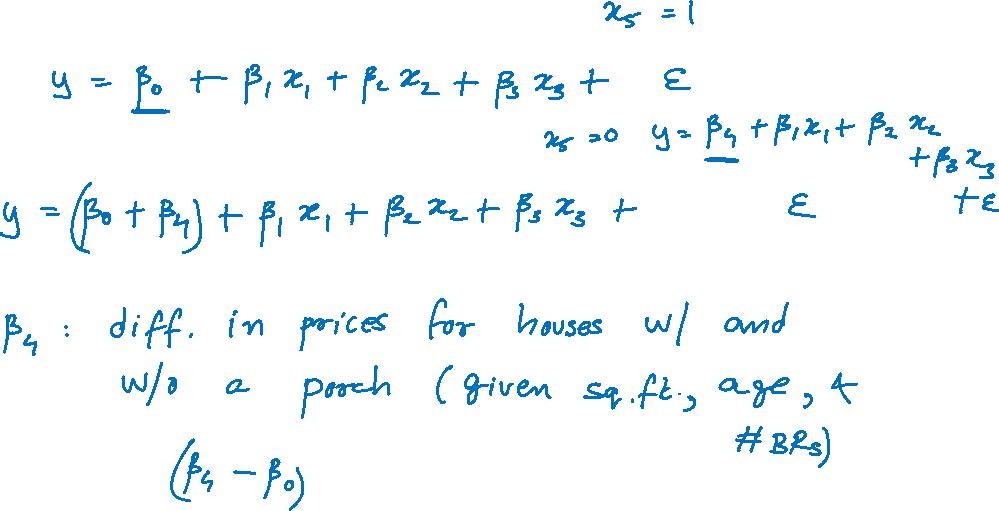 x₅ = 1
y = β₀ + β₁ x₁ + β₂ x₂ + β₃ x₃ + ε
x₅ = 0 y = β₄ + β₁x₁ + β₂ x₂
+ β₃ x₃
+ ε
y = (β₀ + β₄) + β₁ x₁ + β₂ x₂ + β₃ x₃ + ε
β₄ : diff. in prices for houses w/ and
w/o a porch (given sq.ft., age, &
# BRs)
(β₄ − β₀)